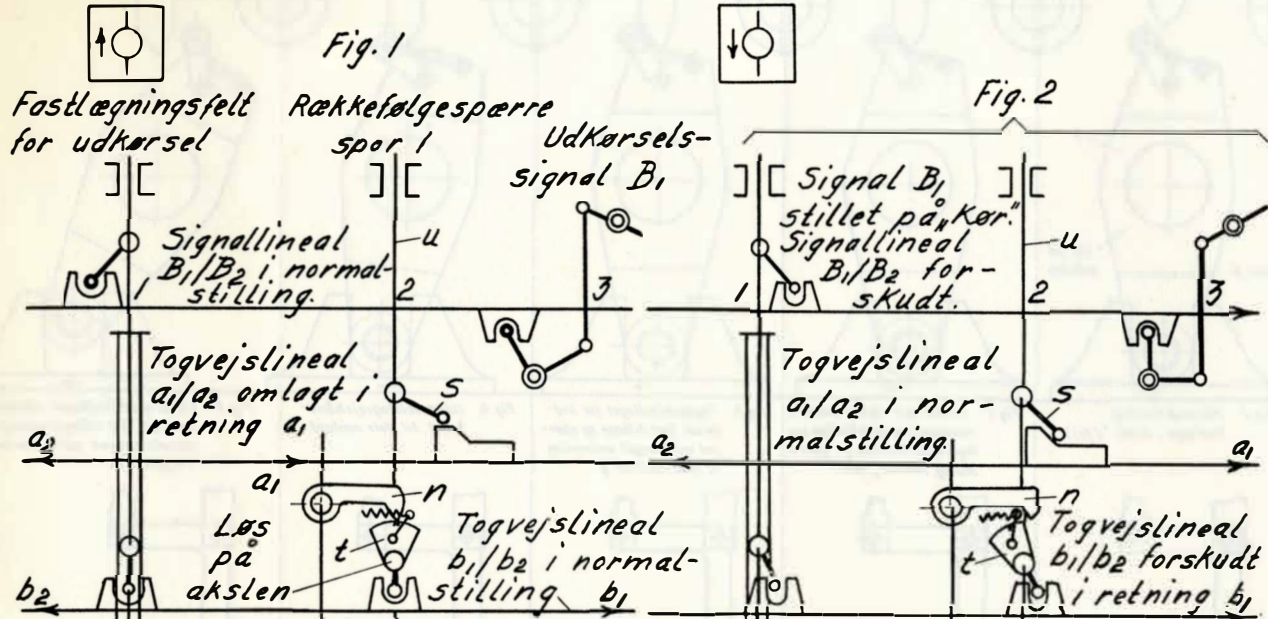 Fig. 1
Fastlægningsfelt
for udkørsel
Rækkefølgespærre
spor 1
Udkørsels-
signal B1
Signallineal
B1/B2 i normal-
stilling.
u
1
2
3
Togvejslineal
a1/a2 omlagt i
retning a1
s
a2
a1
n
Løs
på
akslen
t
Togvejslineal
b1/b2 i normal-
stilling
b2
b1
Fig. 2
Signal B1
stillet på „Kør."
Signallineal
B1/B2 for-
skudt.
u
1
2
3
Togvejslineal
a1/a2 i nor-
malstilling.
s
a2
a1
n
t
Togvejslineal
b1/b2 forskudt
i retning b1